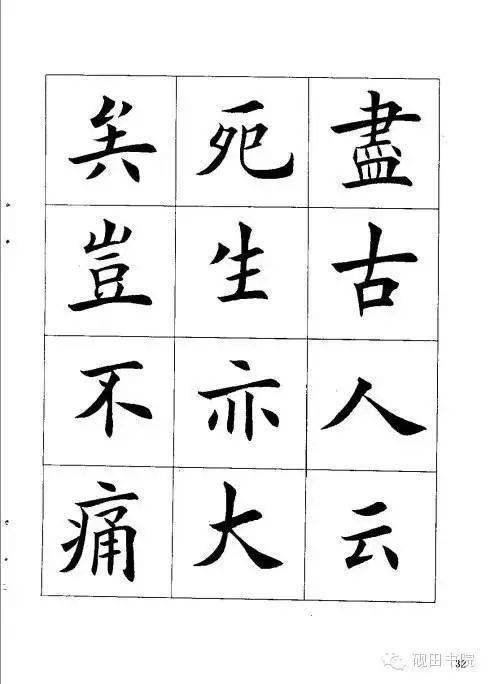 盡古人云
死生亦大
矣豈不痛
32
砚田书院